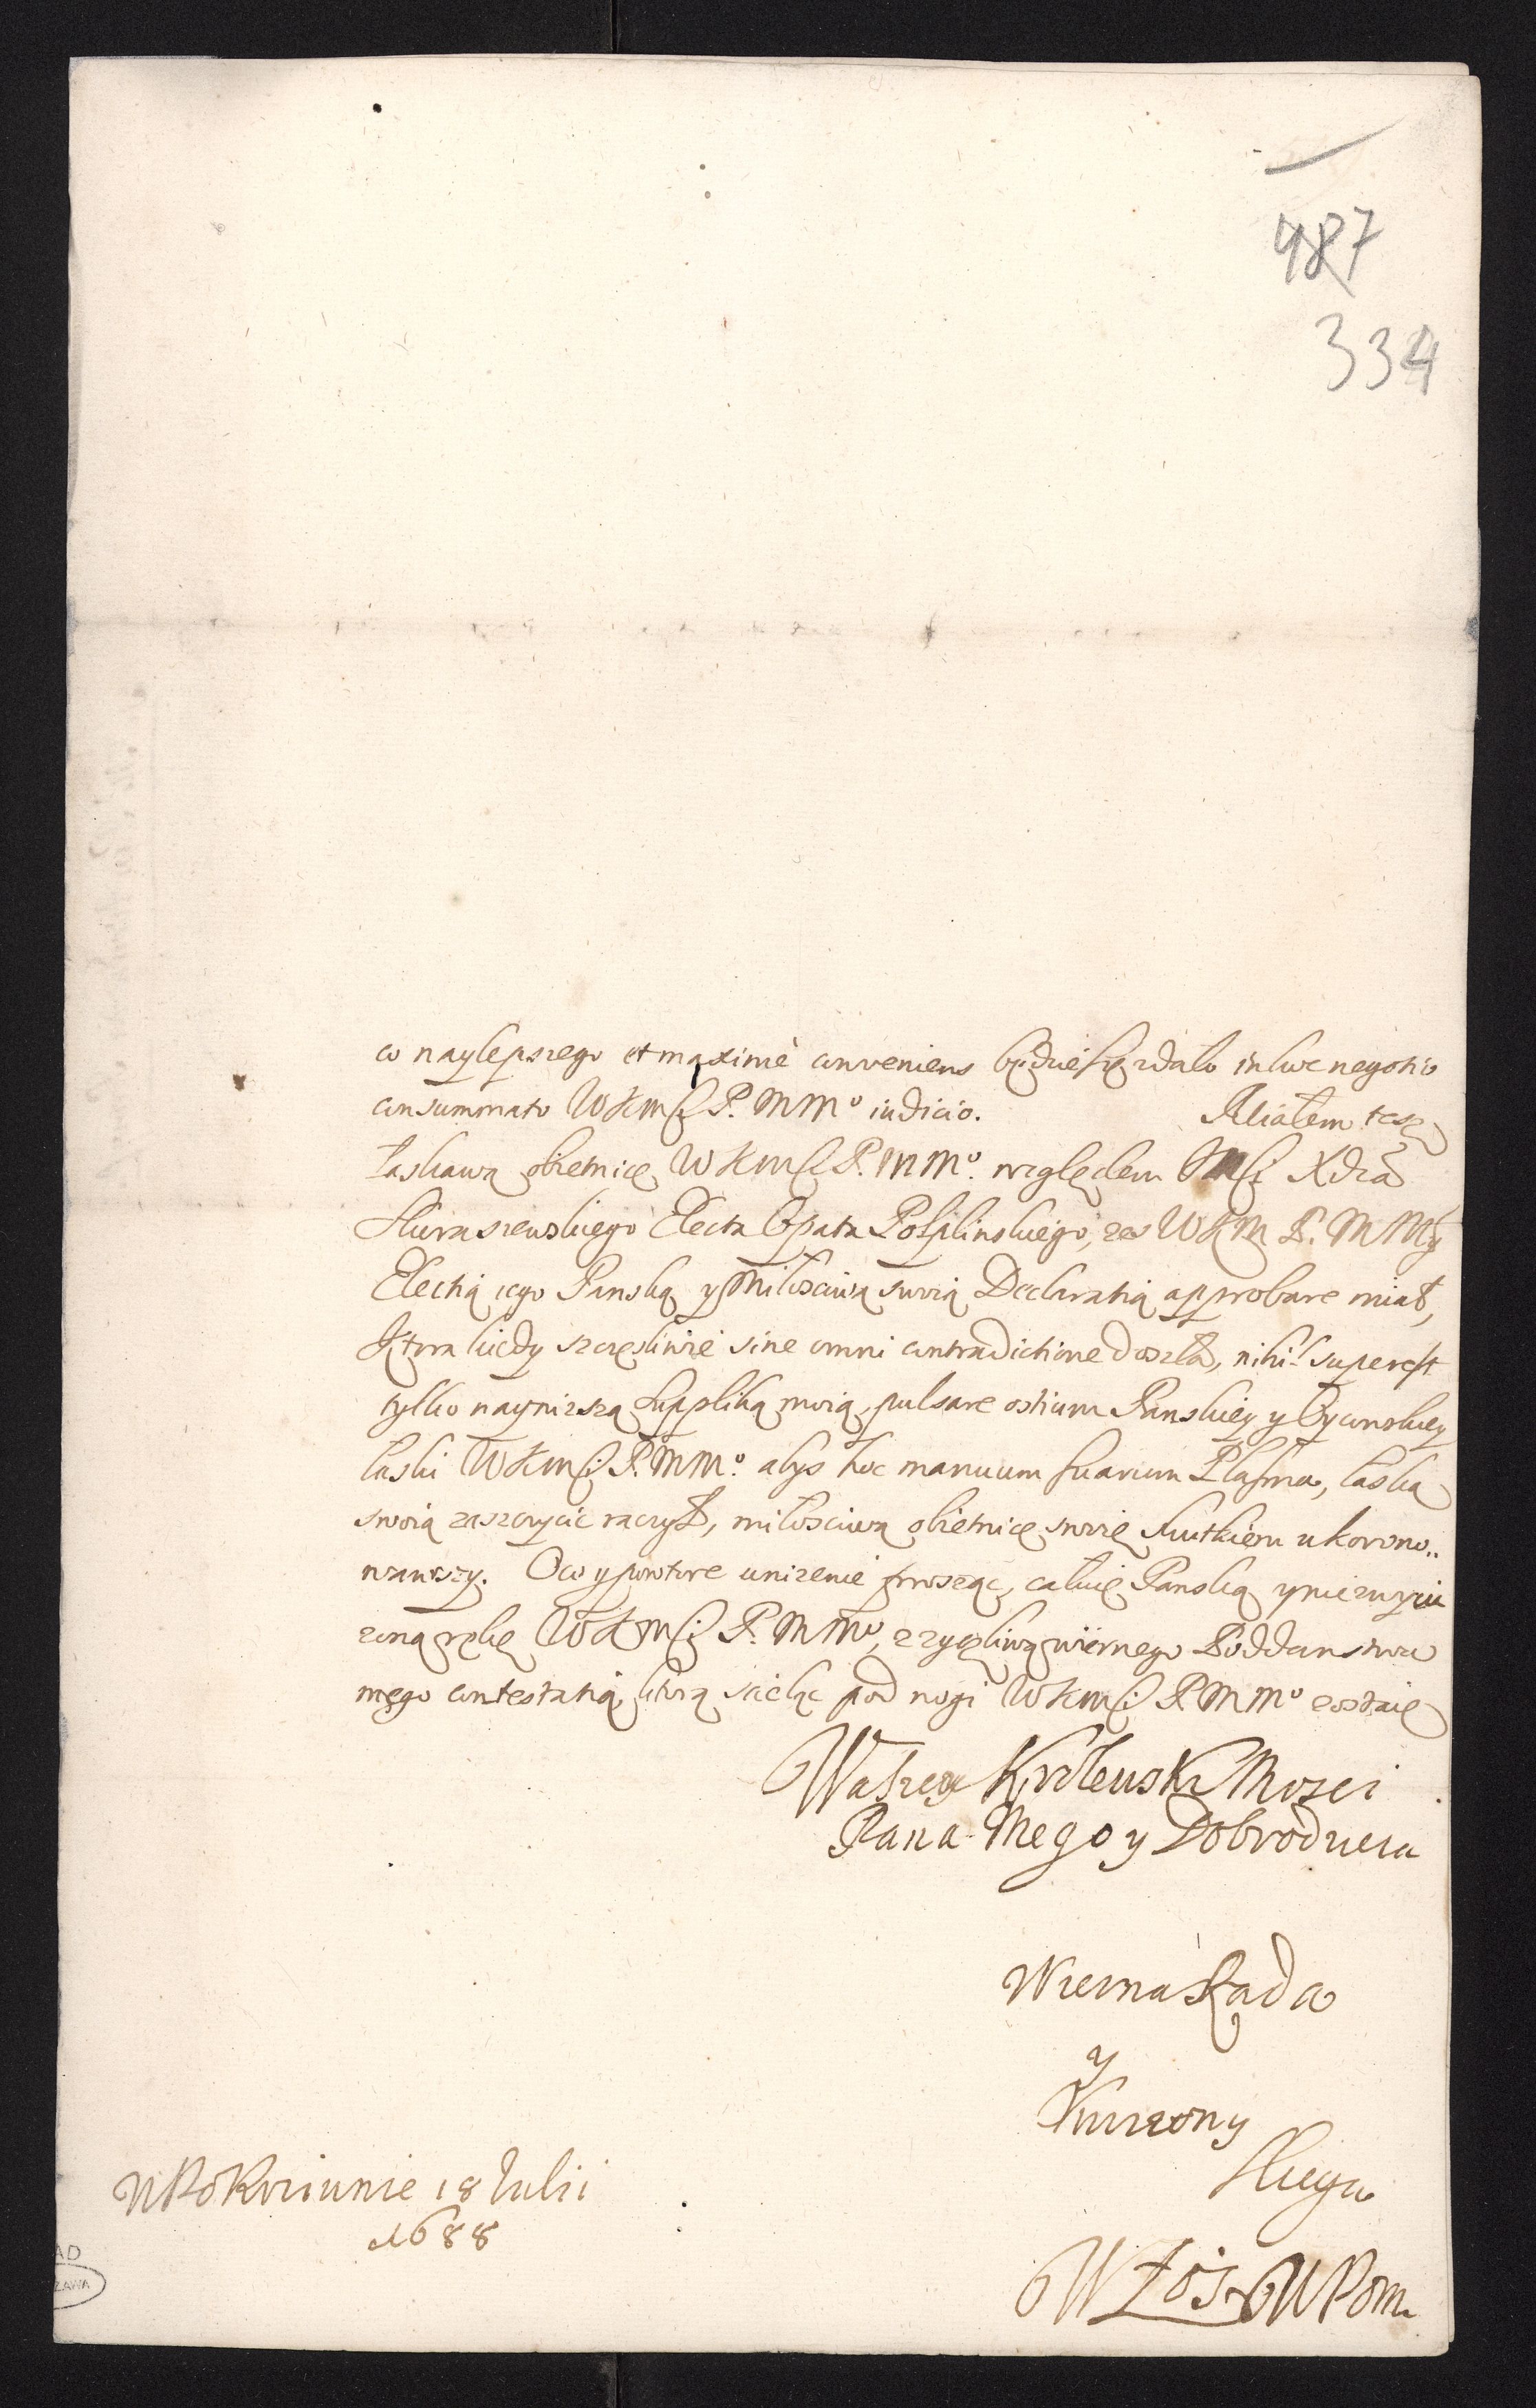 487
334
co naylepszego et maximè conveniens będzie się zdało in hoc negotio
consummato WKMsci P. MMo iudicio. Miałem tesz
łaskawą obietnicę WKMsci P. MMo. względem Xdza
Skuraszewskiego Electa Opata Polplinskiego, zes WKM P. M Mły
Electią iego Panską y Miłosciwą swoią Declaratią approbare miał,
Ktora kiedy szczęsliwie sine omni contradictione doszła, nihil superest
tylko naynizszą supliką moią, pulsare ostium Panskiey y Oycowskiey
łaski WKMsci P. MMo. abys hoc manuum suarum Plasma, łaską
swoią zaszczycic raczył, miłosciwą obietnicę swoię skutkiem ukorono..
wawszy. O co y powtore unizenie prosząc, całuię Panską y niezwycię
zoną rękę WKMsci P. MMo, z zyczliwą wiernego Poddanstwa
mego contestatią, ktorą scieląc pod nogi WKMsci P. MMo zostaię
Waszey Krolewski Mosci
Pana Mego y Dobrodzieia
Wierna Rada
y
Unizony
Sługa
W Łoś WPom
W Pokrziunie 18 Iulii
1688
AD
ZAWA